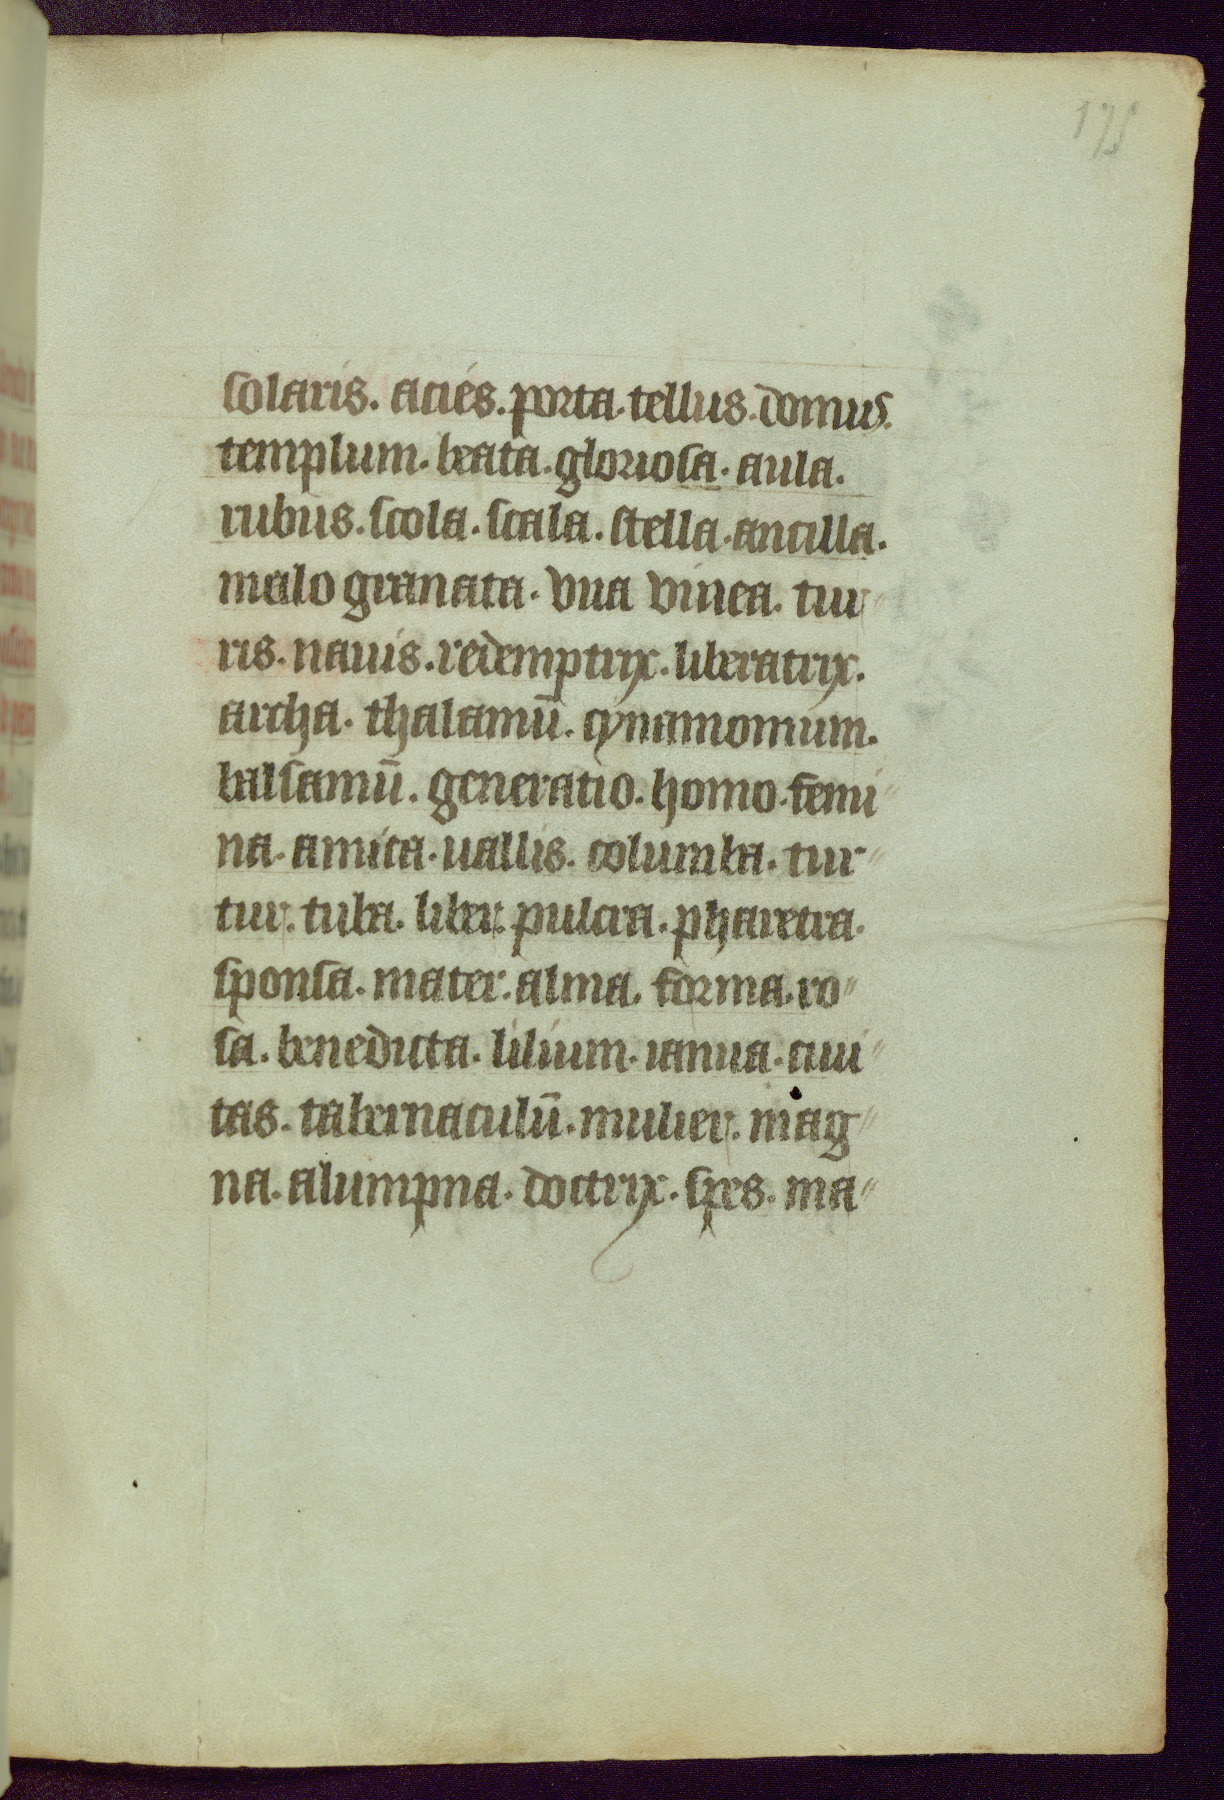 175
solaris. acies. porta. tellus. domus.
templum. beata. gloriosa. aula.
rubus. scola. scala. stella. ancilla.
malo granata. vua vinea. tur-
ris. nauis. redemptrix. liberatrix.
archa. thalamū. cynamomum.
balsamū. generatio. homo. femi-
na. amica. uallis. columba. tur-
tur. tuba. liber. pulcra. pharetra.
sponsa. mater. alma. forma. ro-
sa. benedicta. lilium. ianua. ciui-
tas. tabernaculū. mulier. mag-
na. alumpna. doctrix. spes. ma-